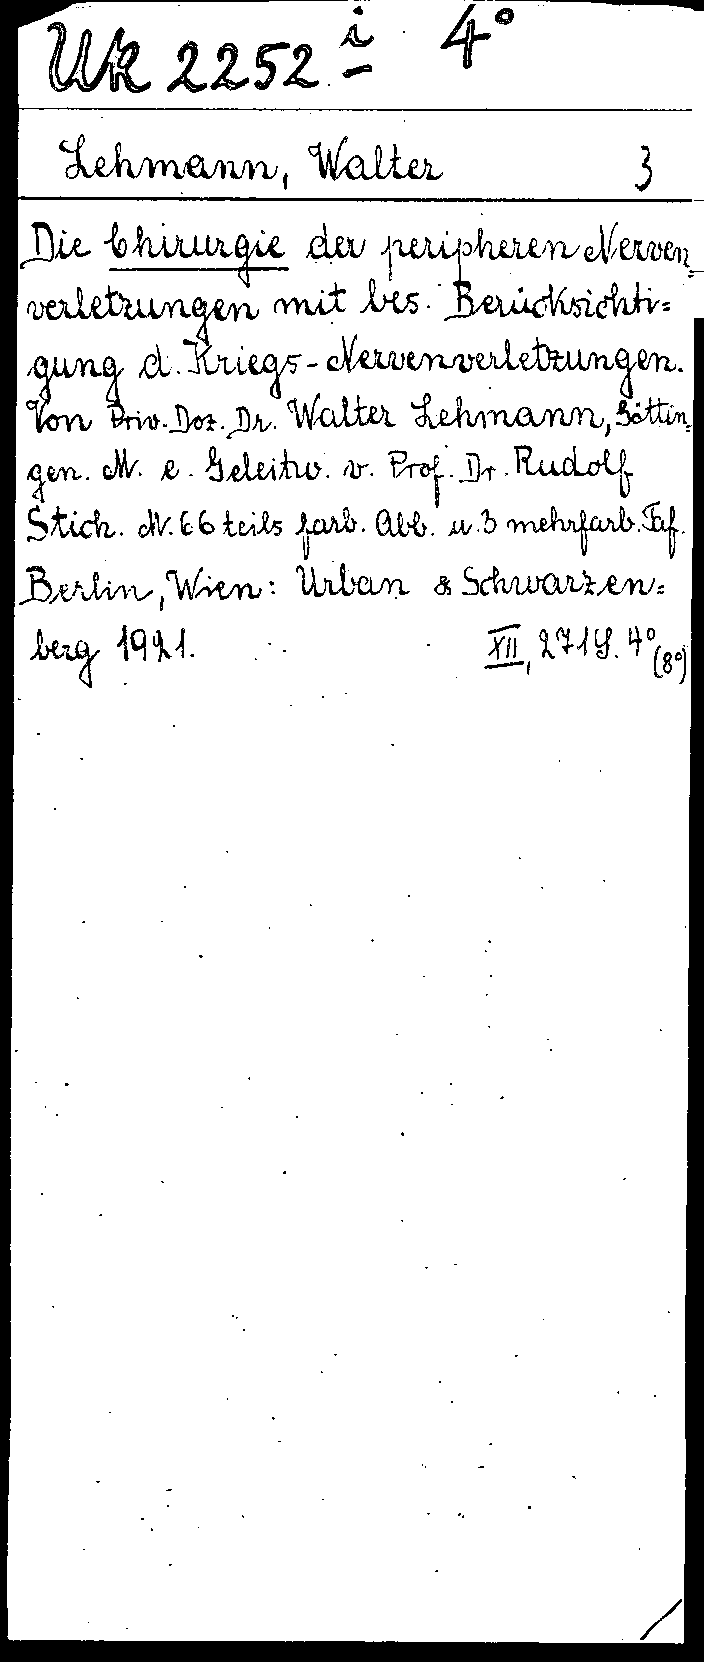 Uk 2252 i 4°
Lehmann, Walter 3
Die Chirurgie der peripheren Nerven=
verletzungen mit bes. Berücksichti=
gung d. Kriegs-Nervenverletzungen.
Von Priv. Doz. Dr. Walter Lehmann, Göttin=
gen. M. e. Geleitw. v. Prof. Dr. Rudolf
Stich. M. 66 teils farb. Abb. u. 3 mehrfarb. Taf.
Berlin, Wien: Urban & Schwarzen=
berg 1921. XII, 271 S. 4° (8°)